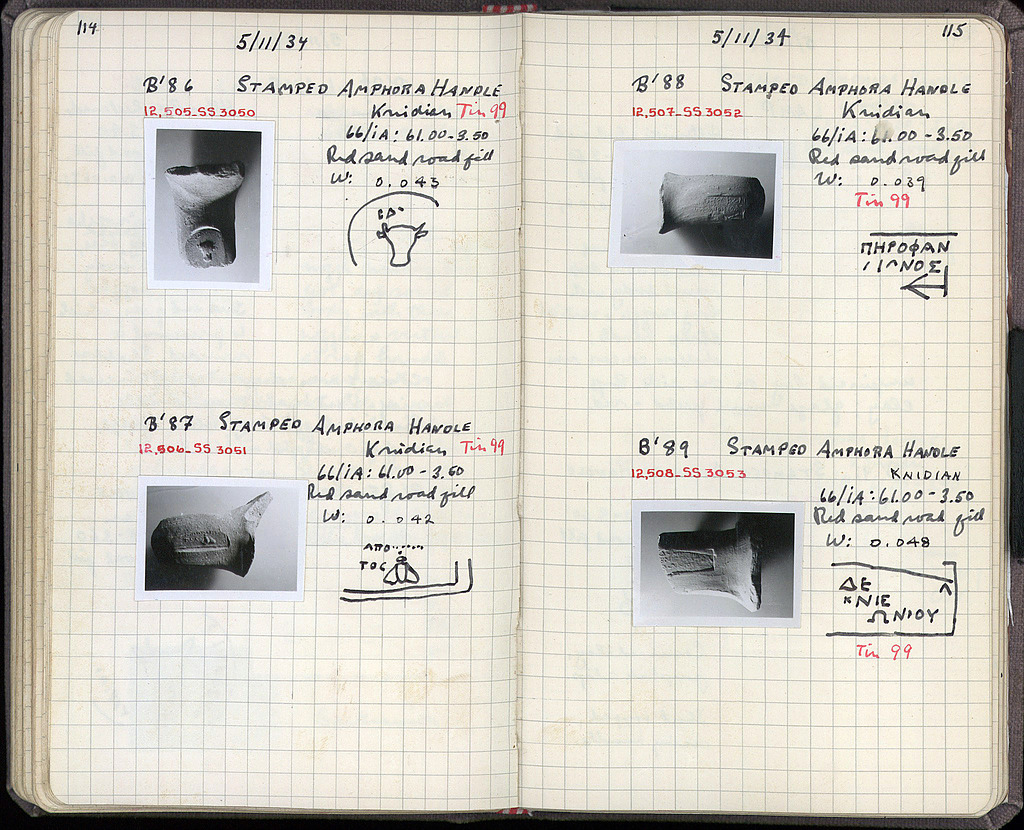 114
5/11/34
B'86 STAMPED AMPHORA HANDLE
12,505_SS 3050 Knidian Tin 99
66/ΙΑ: 61.00-3.50
Red sand road fill
W: 0.043
B'87 STAMPED AMPHORA HANDLE
12,506_SS 3051 Knidian Tin 99
66/ΙΑ: 61.00-3.50
Red sand road fill
W: 0.042
ΑΠΟ······
ΤΟϹ
115
5/11/34
B'88 STAMPED AMPHORA HANDLE
12,507_SS 3052 Knidian
66/ΙΑ: 61.00-3.50
Red sand road fill
W: 0.039
Tin 99
ΠΗΡΟΦΑΝ
ΝΟΣ
B'89 STAMPED AMPHORA HANDLE
12,508_SS 3053 KNIDIAN
66/ΙΑ: 61.00-3.50
Red sand road fill
W: 0.048
ΔΕ
ΚΝΙΕ
ΩΝΙΟΥ
Tin 99